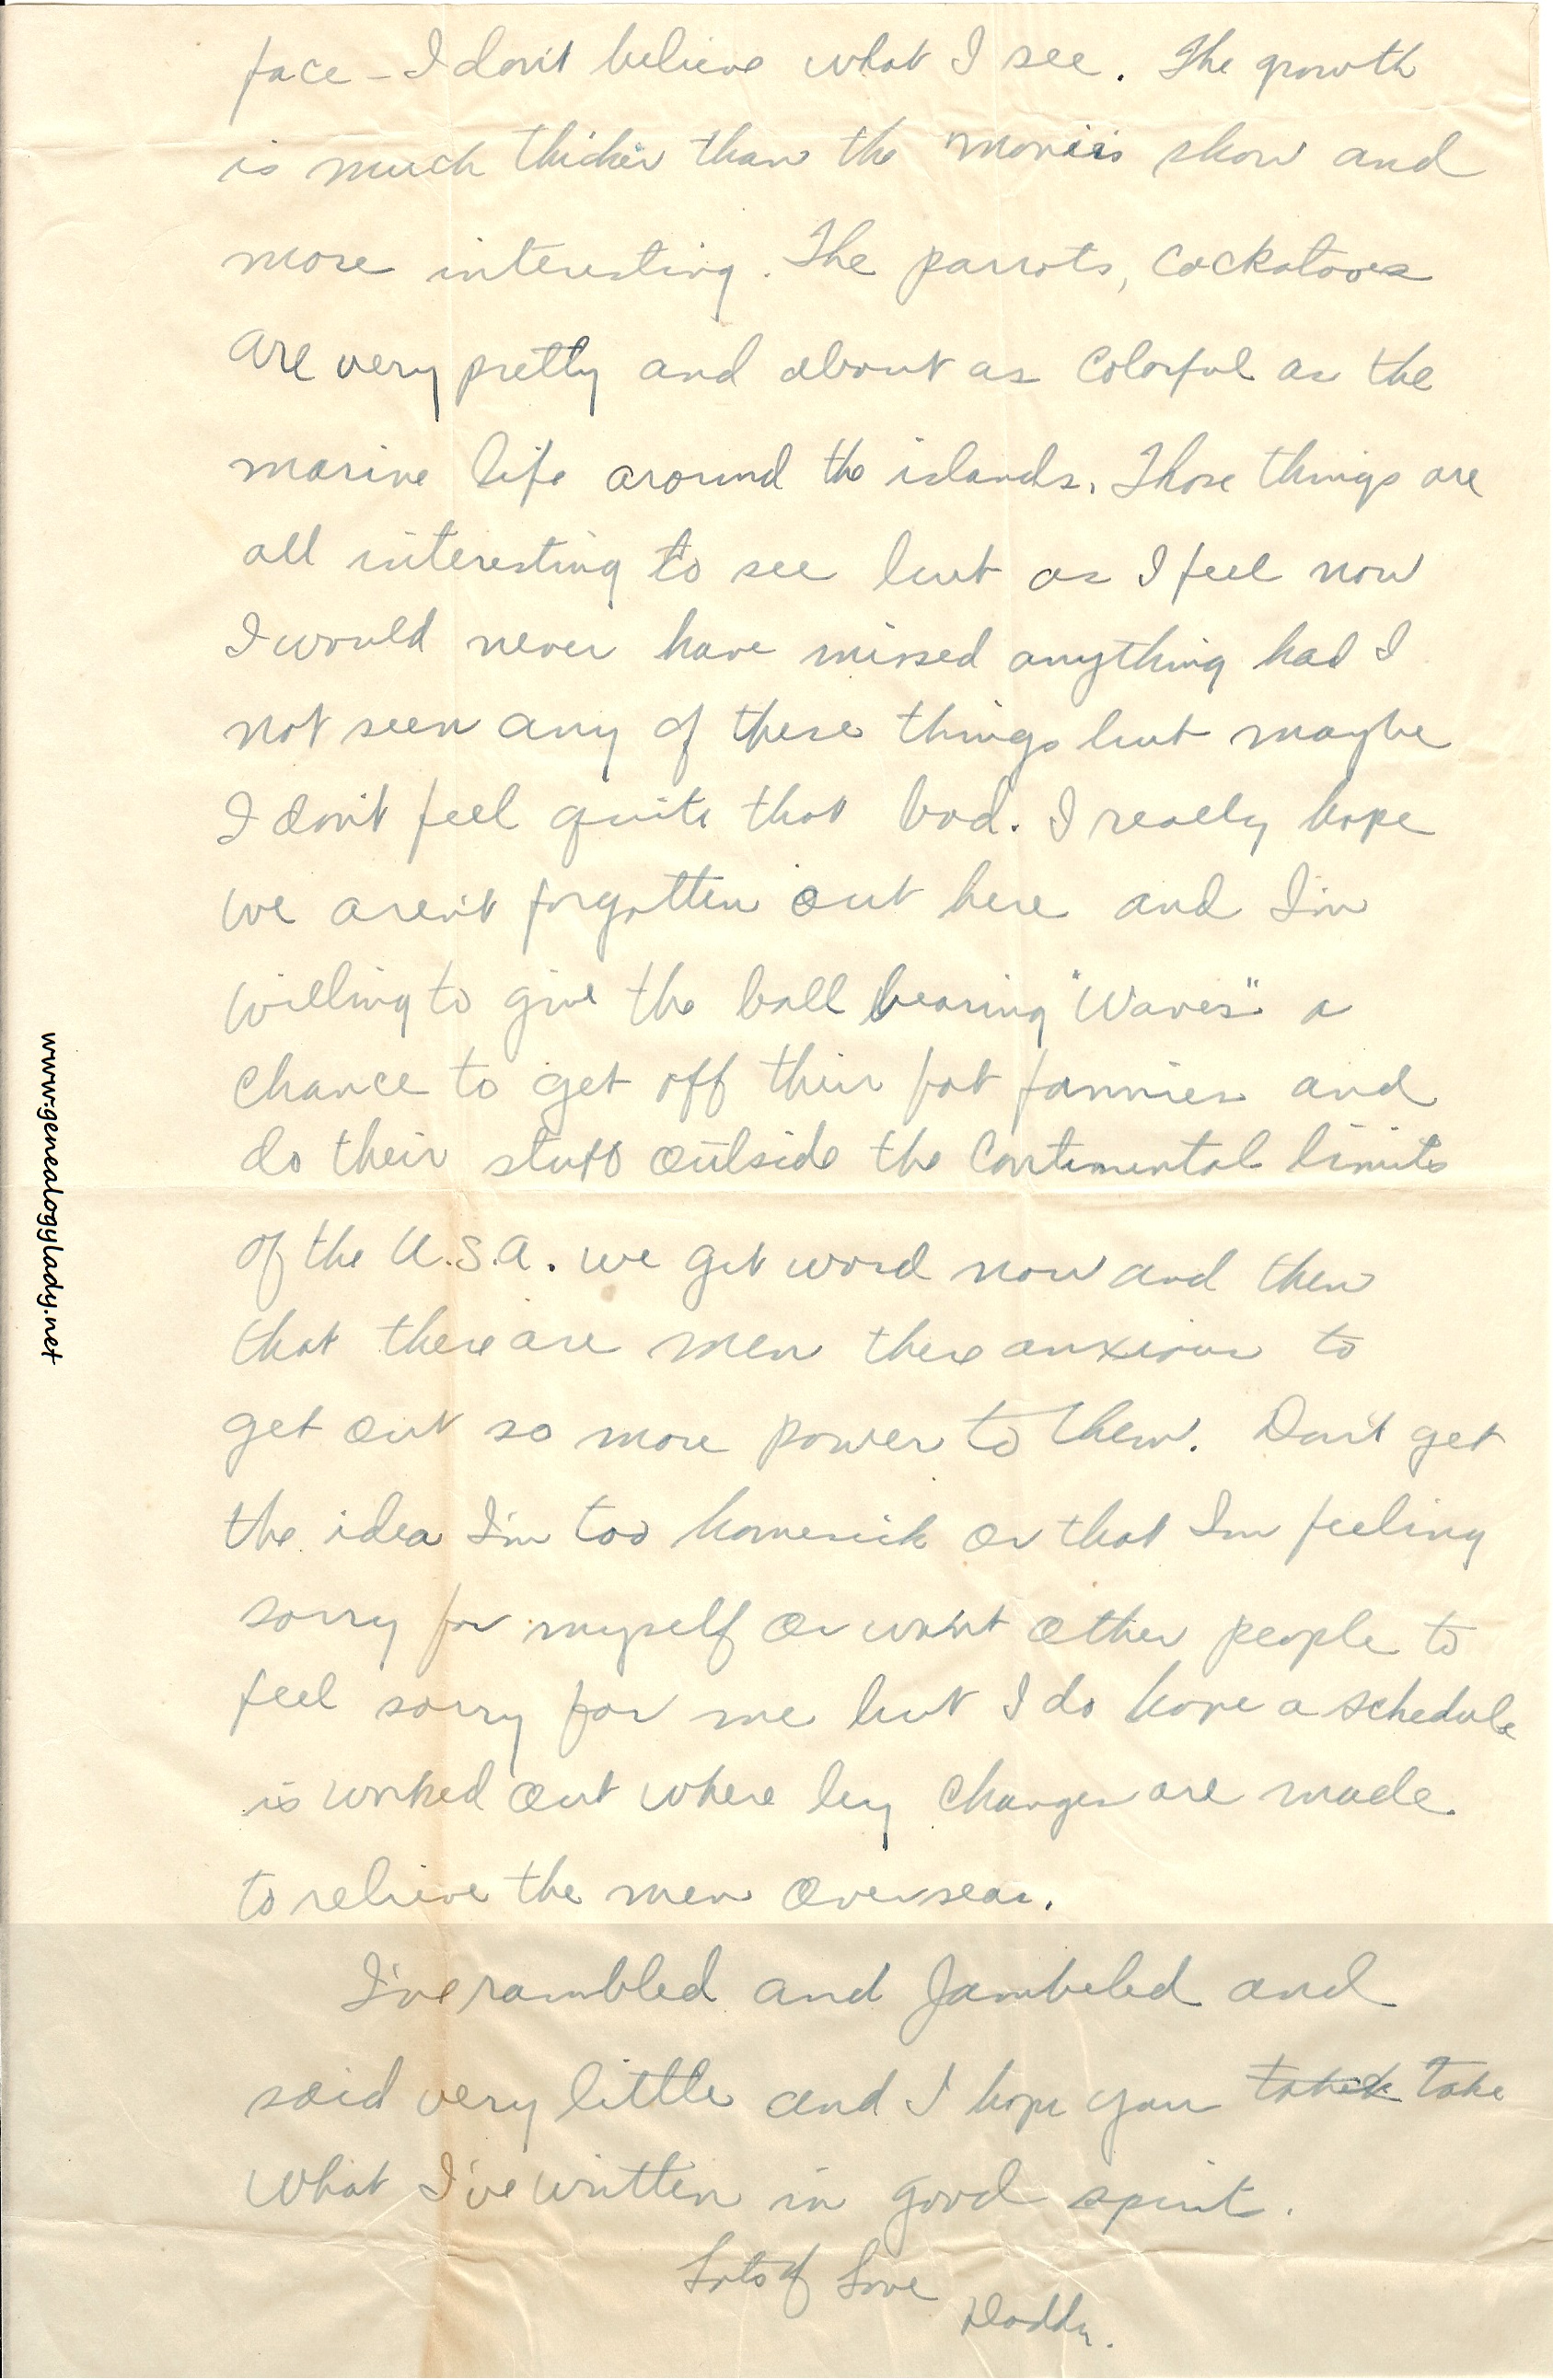 face – I don't believe what I see. The growth
is much thicker than the movies show and
more interesting. The parrots, cockatoos
are very pretty and about as colorful as the
marine life around the islands. Those things are
all interesting to see but as I feel now
I would never have missed anything had I
not seen any of these things but maybe
I don't feel quite that bad. I really hope
we aren't forgotten out here and I'm
willing to give the ball bearing "Waves" a
chance to get off their fat fannies and
do their stuff outside the Continental limits
of the U.S.A. we get word now and then
that there are men there anxious to
get out so more power to them. Don't get
the idea I'm too homesick or that I'm feeling
sorry for myself or want other people to
feel sorry for me but I do hope a schedule
is worked out where by changes are made
to relieve the men overseas.
I've rambled and Jambeled and
said very little and I hope you take
what I've written in good spirit.
Lots of Love
Daddy.
www.genealogylady.net